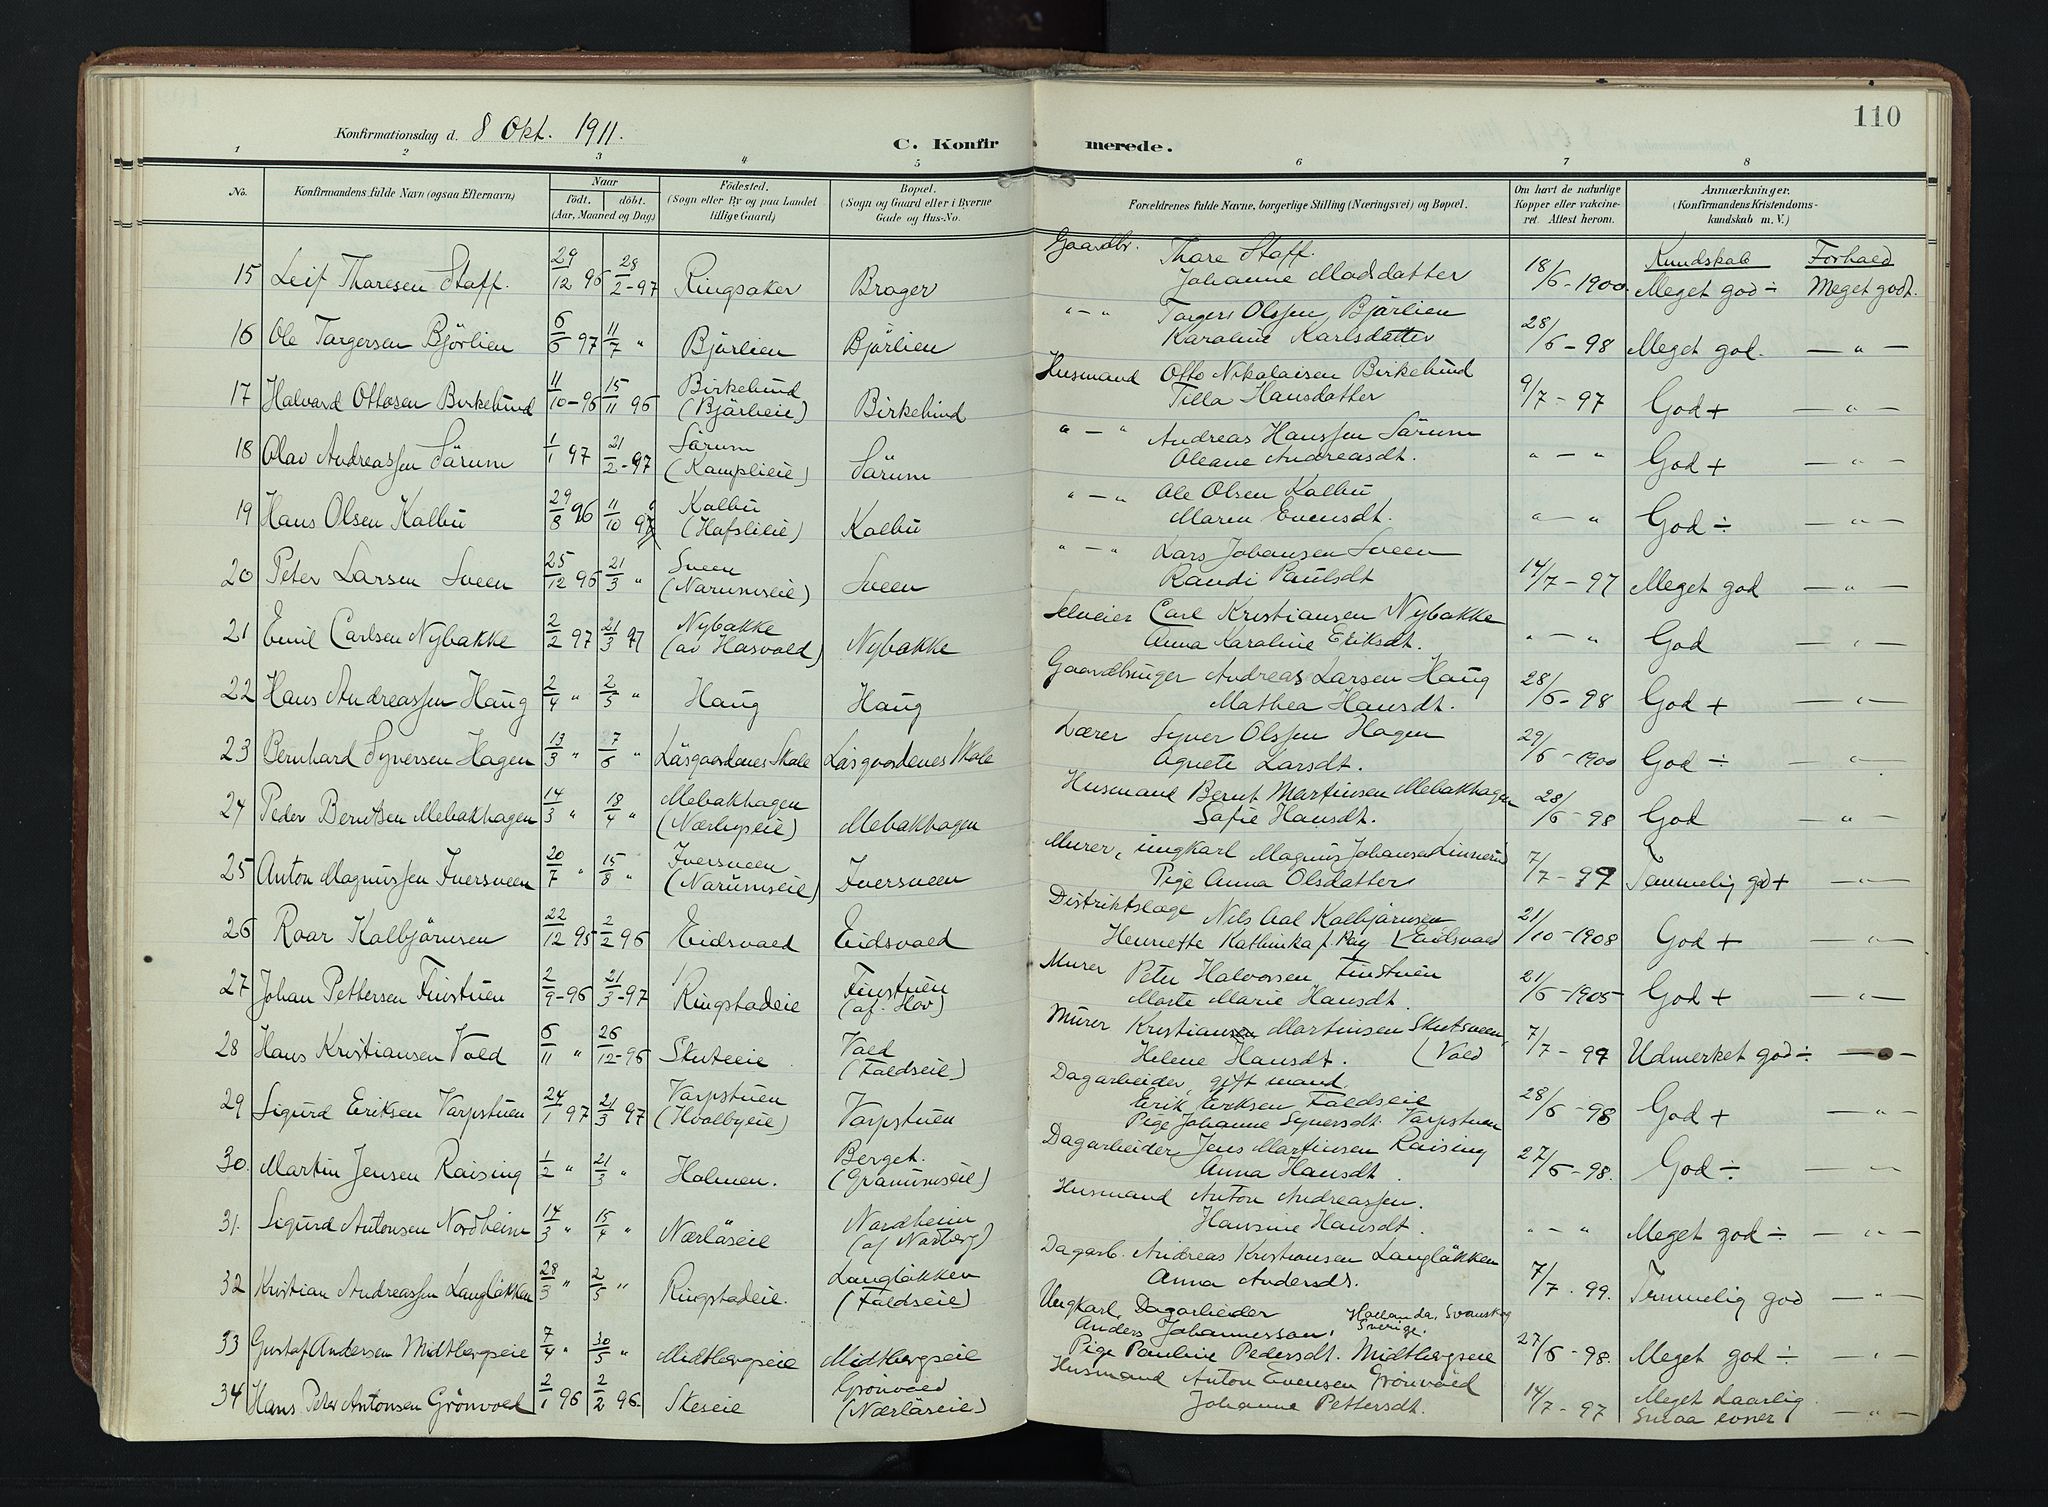 110
Konfirmationsdag d. 8 Okt. 1911.
C. Konfirmerede.
1 2 3 4 5 6 7 8
No. Konfirmandens fulde Navn (ogsaa Efternavn) Naar født. døbt. (Aar, Maaned og Dag) Fødested. (Sogn eller By og paa Landet tillige Gaard) Bopæl. (Sogn og Gaard eller i Byerne Gade og Hus-No. Forældrenes fulde Navne, borgerlige Stilling (Næringsvei) og Bopæl. Om havt de naturlige Kopper eller vakcineret. Attest herom. Anmærkninger. (Konfirmandens Kristendomskundskab m. V.)
Kundskab Forhold
15 Leif Tharesen Staff. 29/12 96 28/2-97 Ringsaker Brager Gaardbr. Thare Staff. Johanne Madsdatter 18/6-1900. Meget god ÷ Meget godt.
16 Ole Torgersen Bjørlien 6/6 97 11/7 " Bjørlien Bjørlien " - " Torgers Olssen Bjørlien Karoline Karlsdatter 28/6-98 Meget god. — " —
17 Halvard Ottosen Birkelund 11/10-96 15/11 96 Birkelund (Bjørlieie) Birkelund Husmand Otto Nikolaisen Birkelund Tilla Hansdatter 9/7-97 God + — " —
18 Olav Andreassen Sørum 1/1 97 21/2-97 Sørum (Kamplieie) Sørum " - " Andreas Hanssen Sørum Oleane Andreasdt. " - " God + — " —
19 Hans Olsen Kalbu 29/8 96 11/10 97 Kalbu (Hafslieie) Kalbu " - " Ole Olsen Kalbu Maren Evensdt. " - " God ÷ — " —
20 Peter Larsen Sveen 25/12 96 21/3 " Sveen (Narumseie) Sveen " - " Lars Johansen Sveen Randi Paulsdt 14/7-97 Meget god — " —
21 Emil Carlsen Nybakke 2/2 97 21/3 97 Nybakke (av Hasvold) Nybakke Selveier Carl Kristiansen Nybakke Anna Karoline Eriksdt. " - " God — " —
22 Hans Andreassen Haug 2/4 " 2/5 " Haug Haug Gaardbruger Andreas Larsen Haug Mathea Hansdt. 28/6-98 God + — " —
23 Bernhard Syversen Hagen 13/3 " 7/6 " Løsgaardenes Skole Løsgaardenes Skole Lærer Syver Olssen Hagen Agnete Larsdt. 29/6-1900 God ÷ — " —
24 Peder Berntsen Mebakhagen 14/3 " 18/4 " Mebakhagen (Nærbyseie) Mebakhagen Husmand Bernt Martinsen Mebakhagen Safie Hansdt. 28/6-98 God — " —
25 Anton Magnussen Iversveen 20/7 " 15/8 " Iversveen (Narumseie) Iversveen Murer, ungkarl Magnus Johansen Linnerud Pige Anna Olsdatter 7/7-97 Temmelig god + — " —
26 Roar Kolbjørnsen 22/12 95 2/2 96 Eidsvold Eidsvold Distriktslæge Nils Aal Kolbjørnsen Henriette Kathinka f. Pay (Eidsvold 21/10-1908 God + — " —
27 Johan Pettersen Finstuen 2/9-96 21/3-97 Ringstadeie Finstuen (af. Hov) Murer Peter Halvorsen Finstuen Marte Marie Hansdt. 21/6-1905 God + — " —
28 Hans Kristiansen Vold 6/11 " 26/12-96 Skuteeie Vold (Foldseie) Murer Kristiansen Martinsen Skutsveen, Helene Hansdt. (Vold 7/7-97 Udmerket god ÷ — " —
29 Sigurd Eriksen Varpstuen 24/1 97 21/3 97 Varpstuen (Hvolbyeie) Varpstuen Dagarbeider, gift mand. Erik Eriksen Foldseie Pige Johanne Syversdt. Varpstuen 28/6-98 God + — " —
30. Martin Jensen Raising 1/2 " 21/3 " Holmen. Berget. (Granumseie) Dagarbeider Jens Martinsen Raising Anna Hansdt. 27/6-98. God ÷ — " —
31. Sigurd Antonsen Nordheim 14/3 " 15/4 " Nærløseie Nordheim (af Norberg) Husmand Anton Andreassen. Hansine Hansdt. " - " Meget god ÷ — " —
32 Kristian Andreassen Langløkken 28/3 " 2/5 " Ringstadeie. Langløkken (Foldseie) Dagarb. Andreas Kristiansen Langløkken Anna Andersdt. 7/7-99. Temmelig god — " —
33 Gustaf Andersen Midtbergseie 7/4 " 30/5 " Midtbergseie Midtbergseie Ungkarl, Dagarbeider Anders Johannesson, Hollanda, Svanskog Sverige. Pige Pauline Pedersdt. Midtbergseie 27/6-98. Meget god ÷ — " —
34 Hans Peter Antonsen Grönvold 2/1 96 2/2 96. Skeseie Grönvold (Nærløseie) Husmand Anton Evensen Grönvold Johanne Pettersdt. 14/7-97 Meget daarlig smaa evner — " —